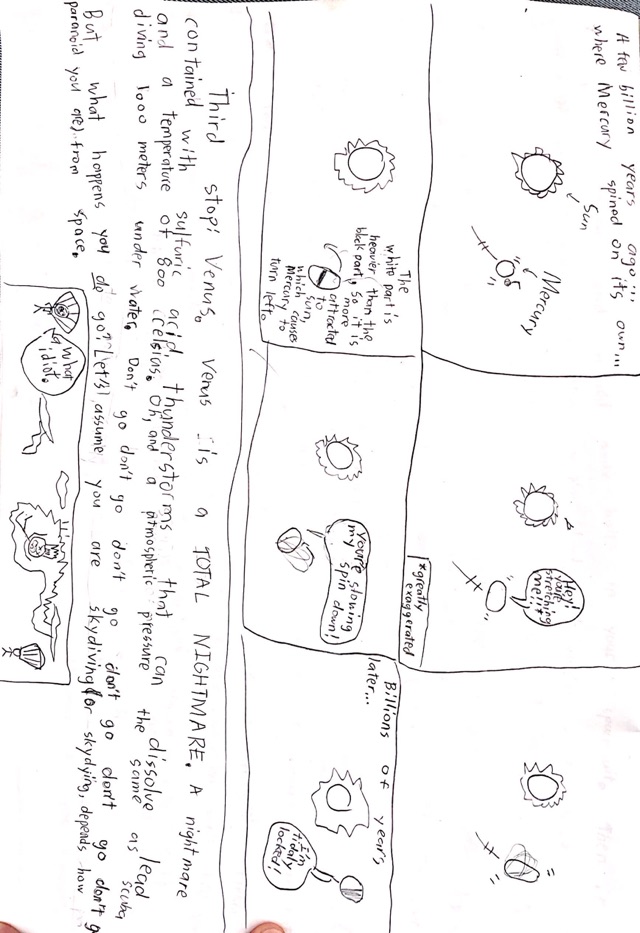 A few billion years ago...
where Mercury spined on it's own...
Sun
Mercury
Hey!
You're
stretching
me!!!
*greatly
exaggerated
The
white part is
heavier than the
black part, so it is
more
attracted
to
sun,
which causes
Mercury to
turn left.
You're slowing
my spin down!
Billions of years
later...
I'm
tidaly
locked!
Third stop: Venus. Venus is a TOTAL NIGHTMARE. A nightmare
contained with sulfuric acid thunderstorms that can dissolve lead
and a temperature of 800 celsius. Oh, and a atmospheric pressure the same as scuba
diving 1000 meters under water. Don't go don't go don't go don't go don't go don't g
But what happens you do go? Let's assume you are skydiving (or skydying, depends how
paranoid you are) from space.
What
idiot.